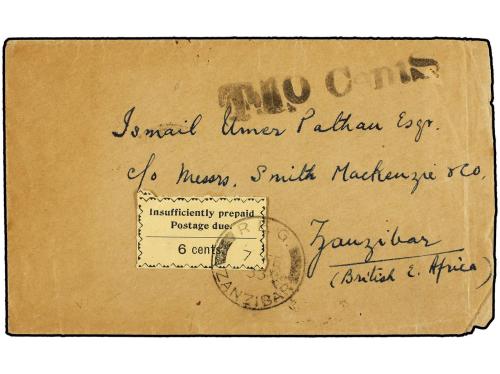 T.10 Cents
Ismail Umer Pathan Esqr.
c/o Messrs. Smith Mackenzie & Co.
Insufficiently prepaid
Postage due.
6 cents.
R. G.
7
ZANZIBAR
Zanzibar
(British E. Africa)